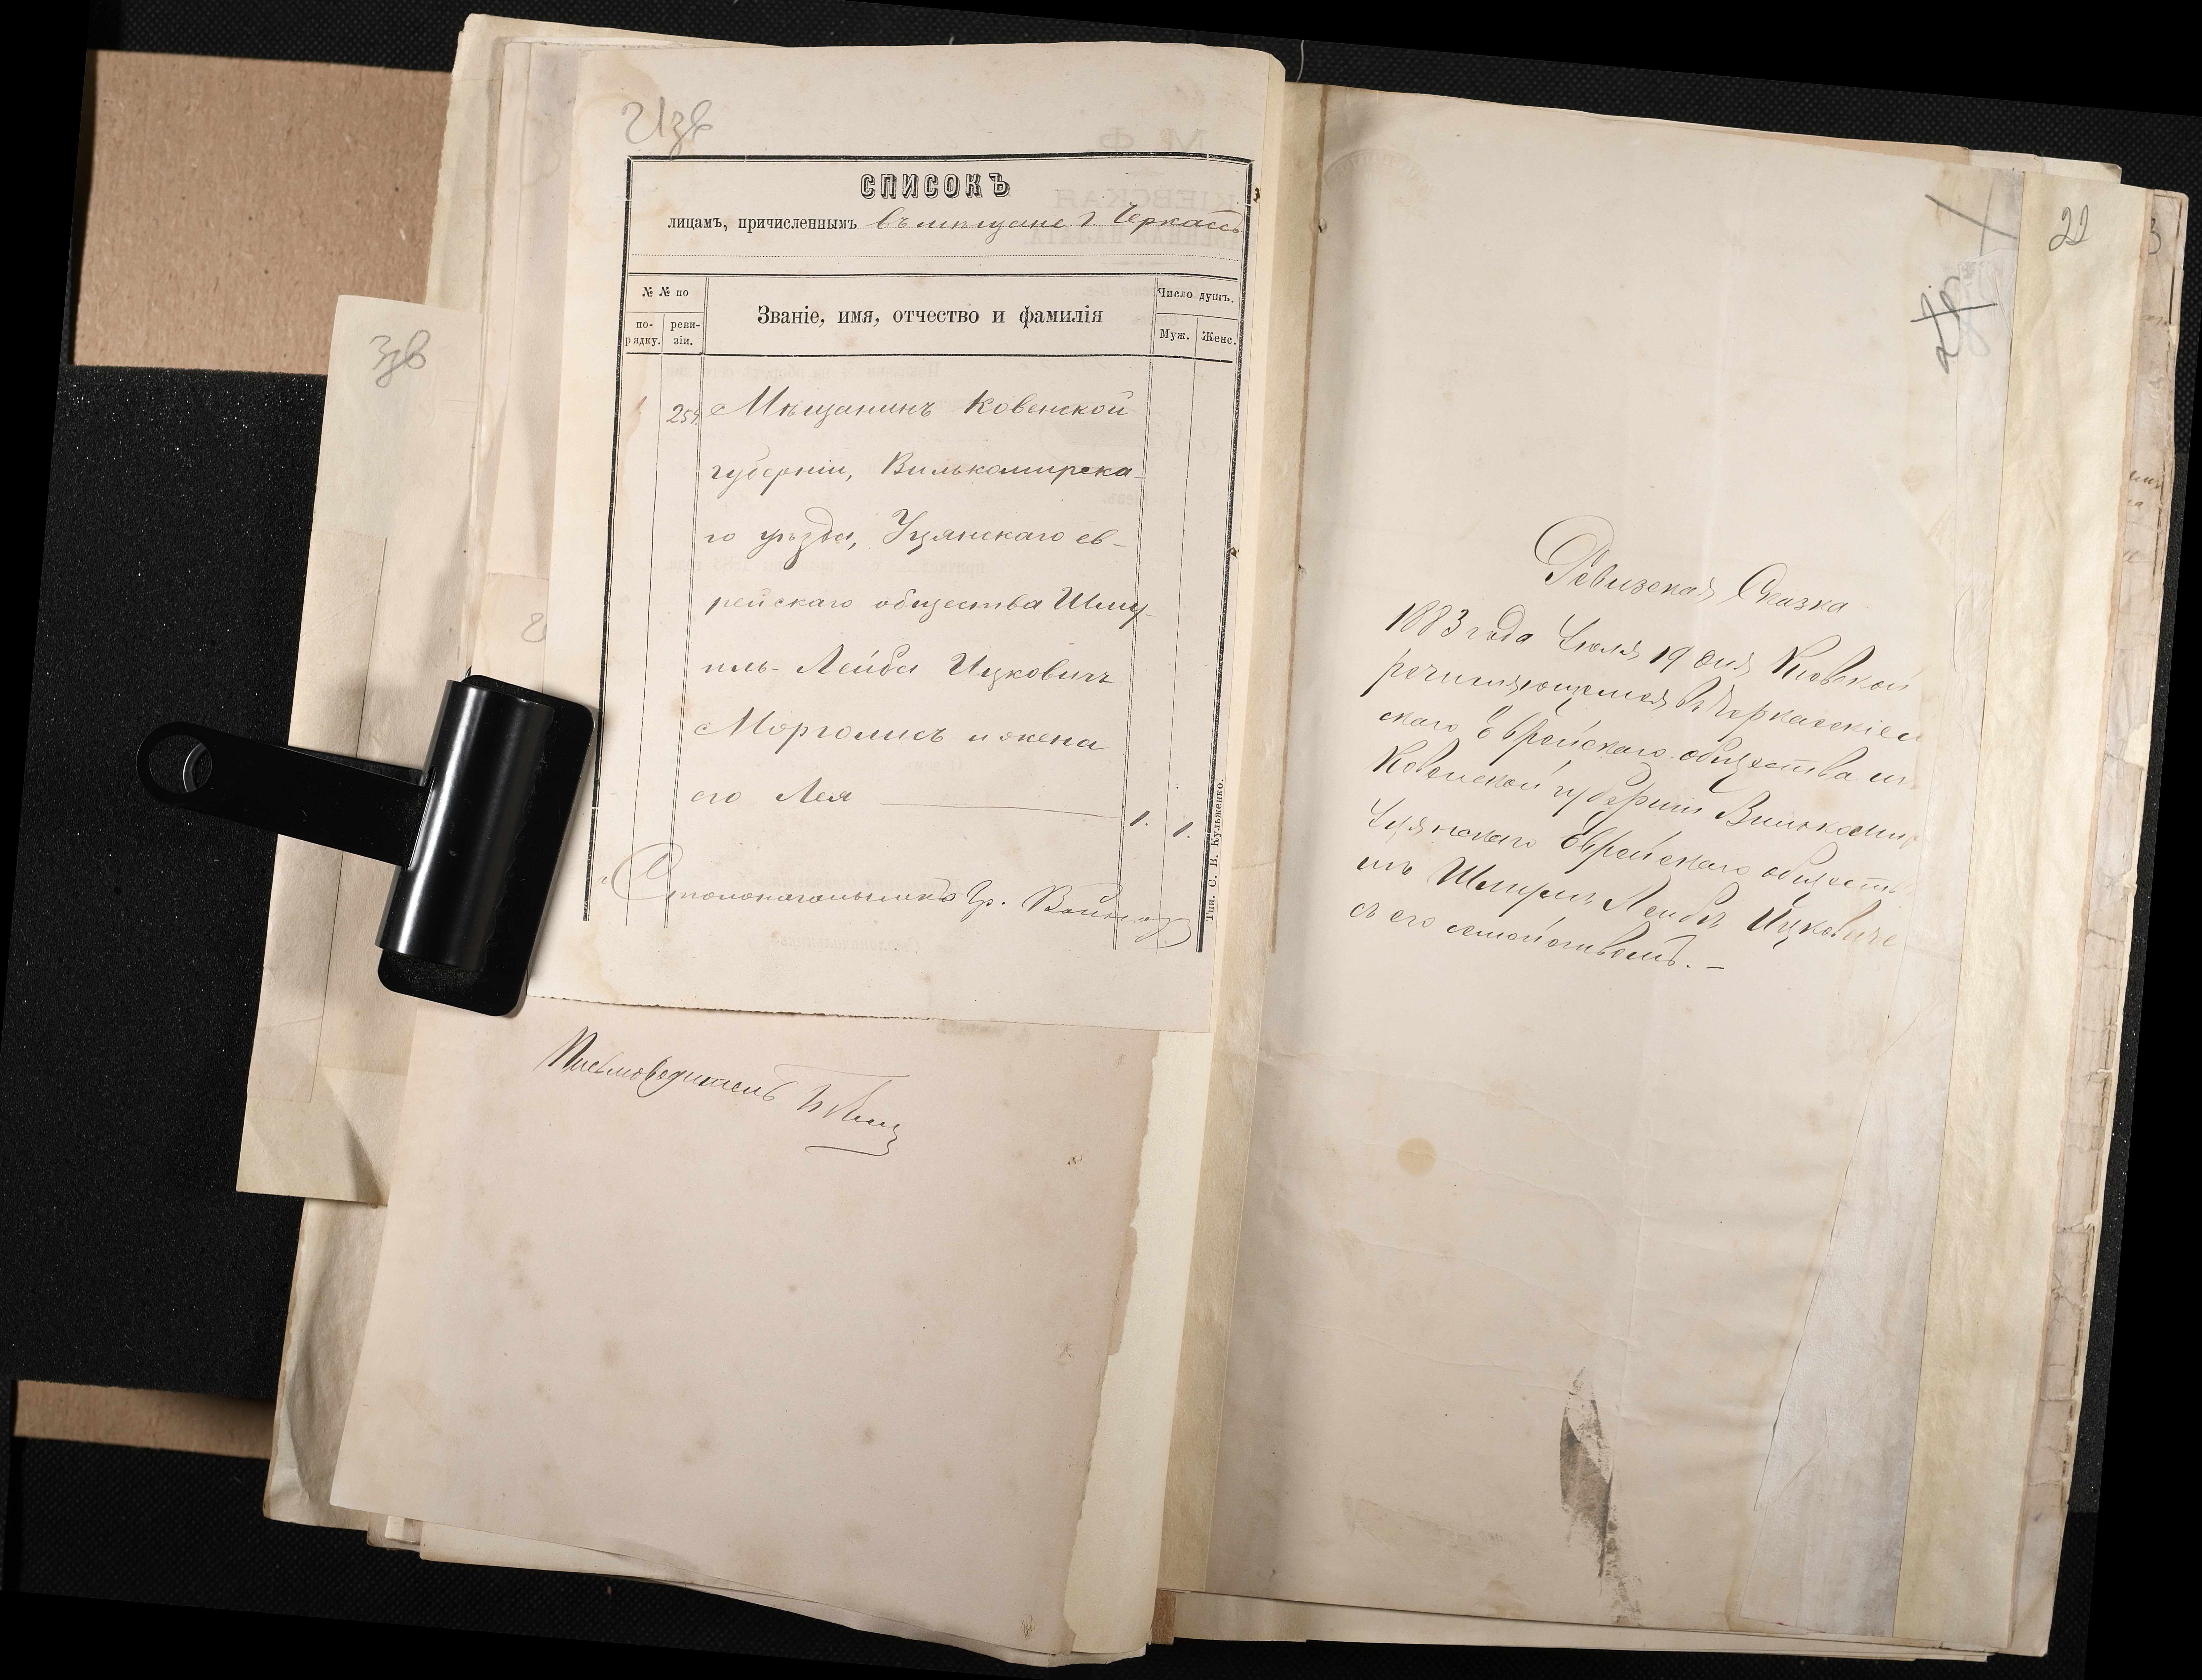 21зв
СПИСОКЪ
лицамъ, причисленнымъ въ мѣщане г. Черкассъ
№ № по
по-
рядку.
реви-
зіи.
Званіе, имя, отчество и фамилія
Число душъ.
Муж. Женс.
254. Мѣщанинъ Ковенской
губерніи, Вилькомирска-
го уѣзда, Уцянскаго ев-
рейскаго общества Шму-
иль-Лейба Ицковичъ
Морголисъ и жена
его Лея 1. 1.
Столоначальникъ Гр.
Тип. С. В. Кульженко.
Письмоводитель
3зв
22
Ревизская Сказка
1883 года Іюля 19 дня Кіевской
речисляющемся въ Черкасскіе
скаго Еврейскаго общества из
Ковенской губерніи Вилькомир
Уцянскаго Еврейскаго обществ
инъ Шмуиль Лейбъ Ицковиче
съ его семействомъ. —